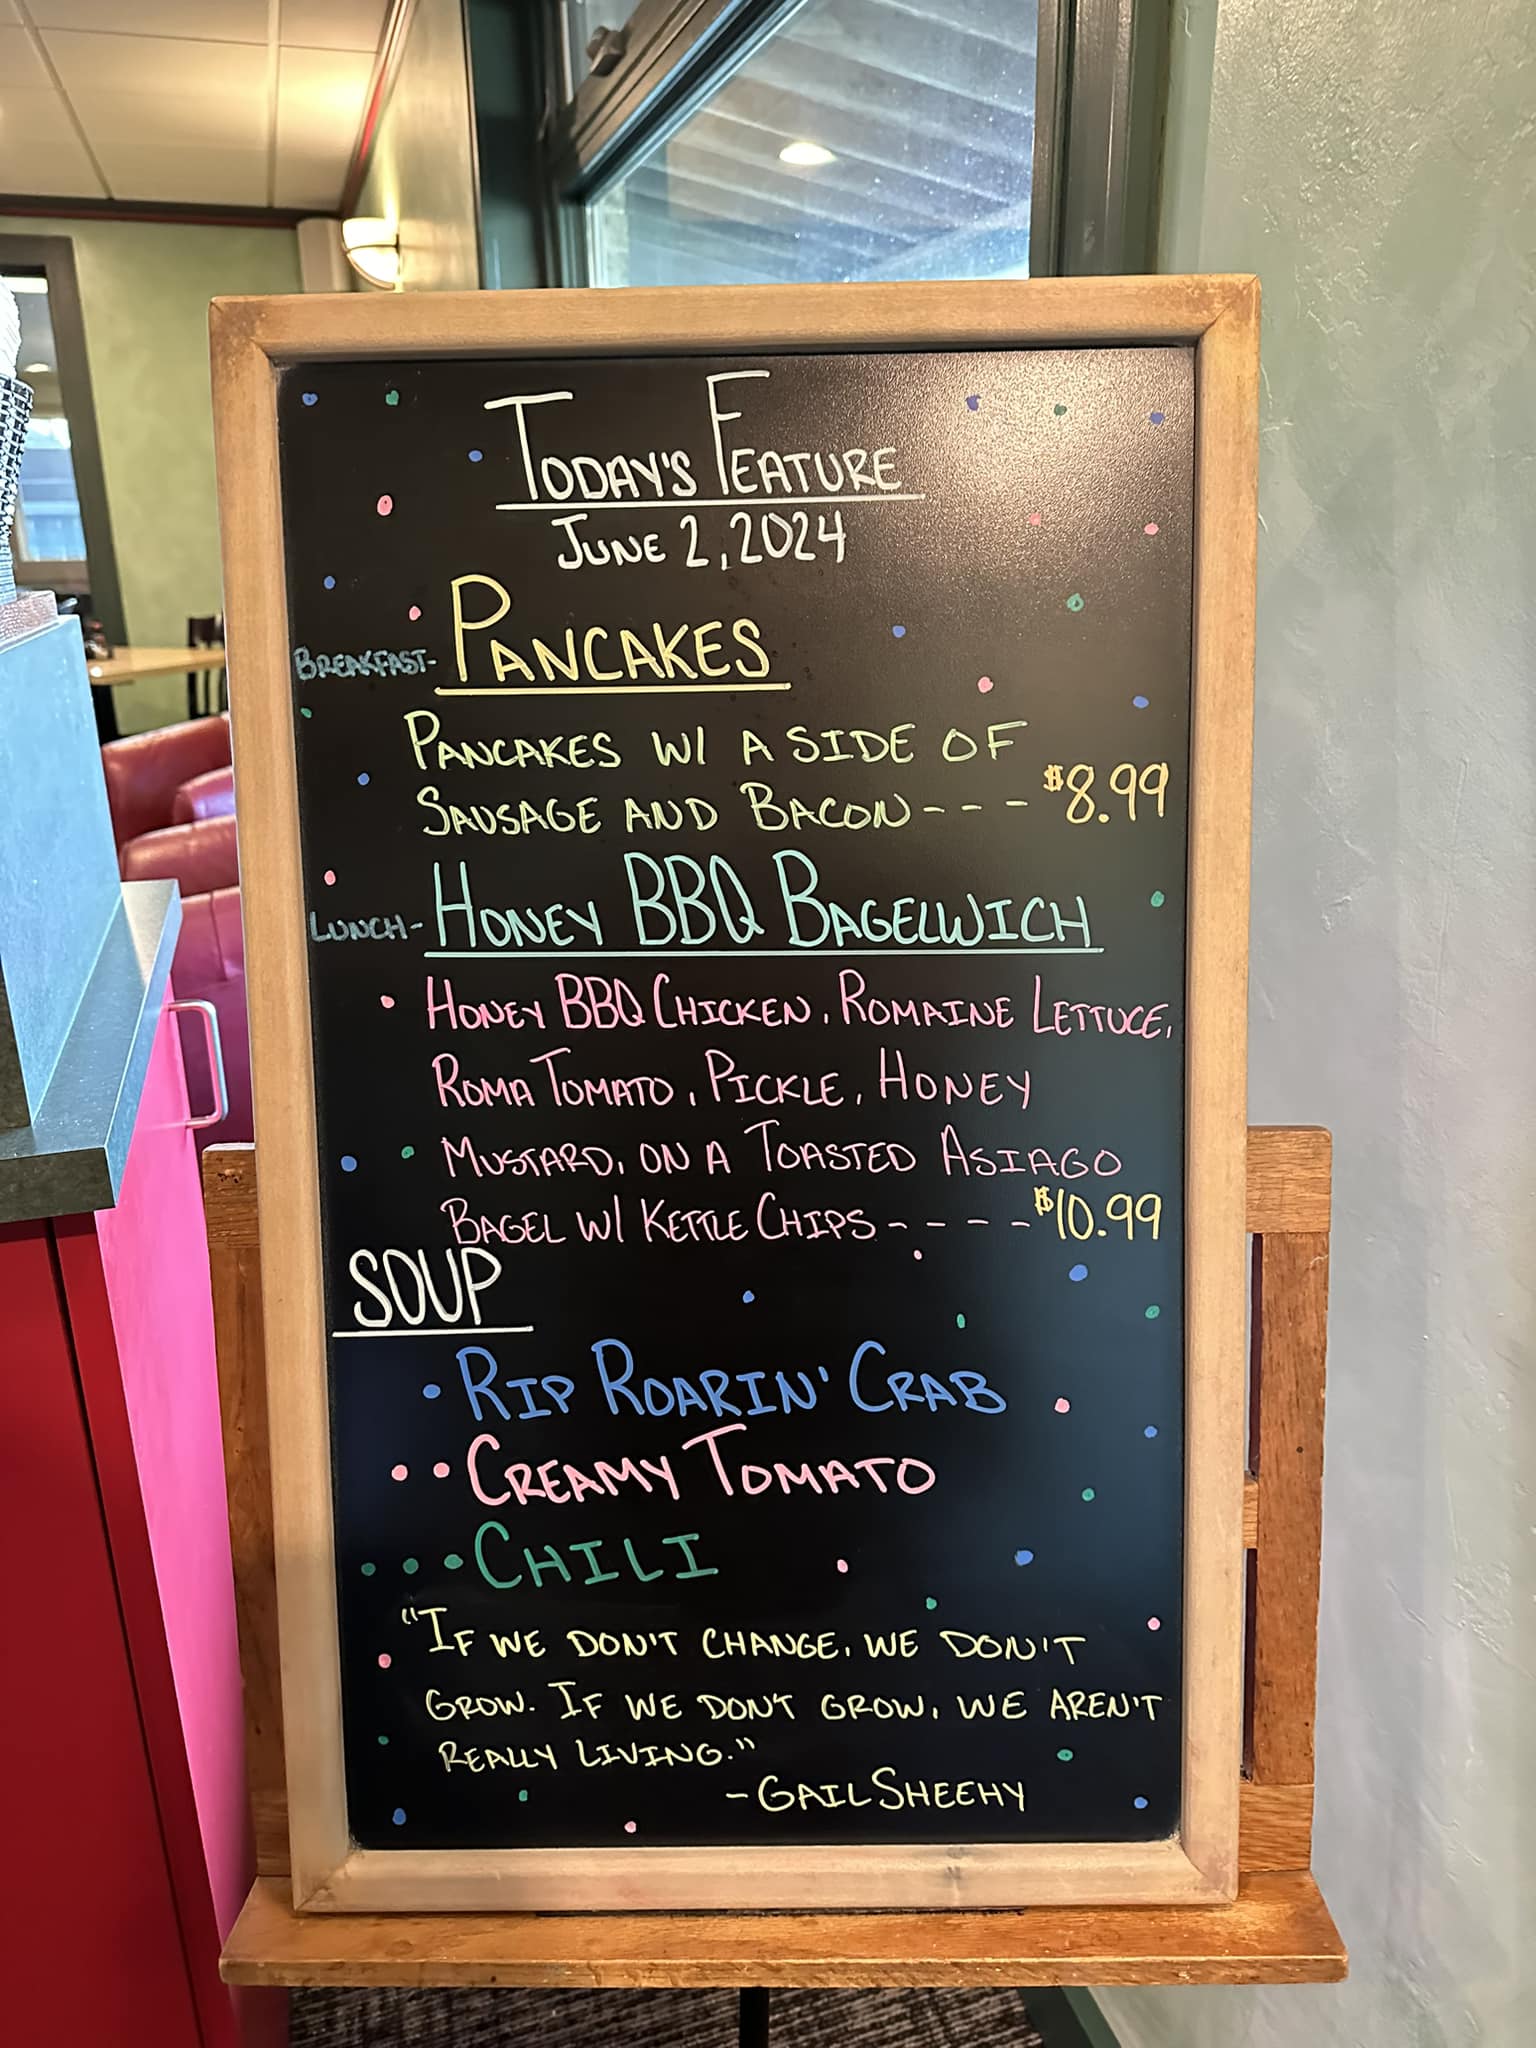 TODAY'S FEATURE
JUNE 2, 2024
BREAKFAST- PANCAKES
PANCAKES W/ A SIDE OF
SAUSAGE AND BACON - - - $8.99
LUNCH- HONEY BBQ BAGELWICH
HONEY BBQ CHICKEN, ROMAINE LETTUCE,
ROMA TOMATO, PICKLE, HONEY
MUSTARD, ON A TOASTED ASIAGO
BAGEL W/ KETTLE CHIPS - - - - $10.99
SOUP
• RIP ROARIN' CRAB
• • CREAMY TOMATO
• • • CHILI
"IF WE DON'T CHANGE, WE DON'T
GROW. IF WE DON'T GROW, WE AREN'T
REALLY LIVING."
- GAIL SHEEHY